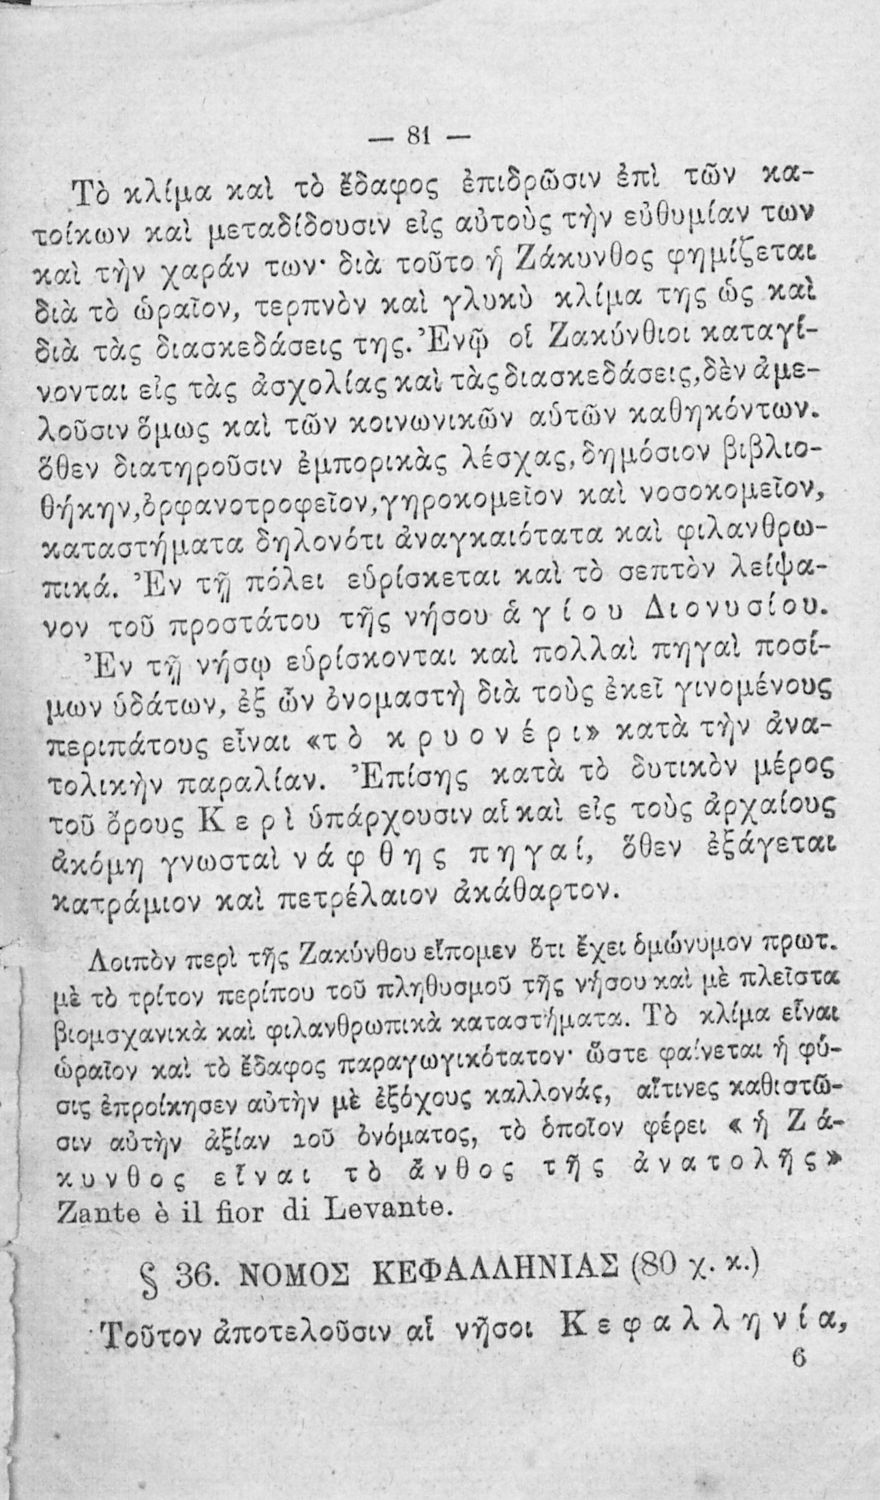 — 81 —
Τὸ κλίμα καὶ τὸ ἔδαφος ἐπιδρῶσιν ἐπὶ τῶν κα-
τοίκων καὶ μεταδίδουσιν εἰς αὐτοὺς τὴν εὐθυμίαν των
καὶ τὴν χαράν των· διὰ τοῦτο ἡ Ζάκυνθος φημίζεται
διὰ τὸ ὡραῖον, τερπνὸν καὶ γλυκὺ κλίμα της ὡς καὶ
διὰ τὰς διασκεδάσεις της. Ἐνῷ οἱ Ζακύνθιοι καταγί-
νονται εἰς τὰς ἀσχολίας καὶ τὰς διασκεδάσεις, δὲν ἀμε-
λοῦσιν ὅμως καὶ τῶν κοινωνικῶν αὑτῶν καθηκόντων.
ὅθεν διατηροῦσιν ἐμπορικὰς λέσχας, δημόσιον βιβλιο-
θήκην, ὀρφανοτροφεῖον, γηροκομεῖον καὶ νοσοκομεῖον,
καταστήματα δηλονότι ἀναγκαιότατα καὶ φιλανθρω-
πικά. Ἐν τῇ πόλει εὑρίσκεται καὶ τὸ σεπτὸν λείψα-
νον τοῦ προστάτου τῆς νήσου ἁγίου Διονυσίου.
Ἐν τῇ νήσῳ εὑρίσκονται καὶ πολλαὶ πηγαὶ ποσί-
μων ὑδάτων, ἐξ ὧν ὀνομαστὴ διὰ τοὺς ἐκεῖ γινομένους
περιπάτους εἶναι «τὸ κρυονέρι» κατὰ τὴν ἀνα-
τολικὴν παραλίαν. Ἐπίσης κατὰ τὸ δυτικὸν μέρος
τοῦ ὄρους Κερὶ ὑπάρχουσιν αἱ καὶ εἰς τοὺς ἀρχαίους
ἀκόμη γνωσταὶ νάφθης πηγαί, ὅθεν ἐξάγεται
κατράμιον καὶ πετρέλαιον ἀκάθαρτον.
Λοιπὸν περὶ τῆς Ζακύνθου εἴπομεν ὅτι ἔχει ὁμώνυμον πρωτ.
μὲ τὸ τρίτον περίπου τοῦ πληθυσμοῦ τῆς νήσου καὶ μὲ πλεῖστα
βιομσχανικὰ καὶ φιλανθρωπικὰ καταστήματα. Τὸ κλίμα εἶναι
ὡραῖον καὶ τὸ ἔδαφος παραγωγικότατον· ὥστε φαίνεται ἡ φύ-
σις ἐπροίκησεν αὐτὴν μὲ ἐξόχους καλλονάς, αἵτινες καθιστῶ-
σιν αὐτὴν ἀξίαν τοῦ ὀνόματος, τὸ ὁποῖον φέρει «ἡ Ζά-
κυνθος εἶναι τὸ ἄνθος τῆς ἀνατολῆς»
Zante è il fior di Levante.
§ 36. ΝΟΜΟΣ ΚΕΦΑΛΛΗΝΙΑΣ (80 χ. κ.)
Τοῦτον ἀποτελοῦσιν αἱ νῆσοι Κεφαλληνία,
6